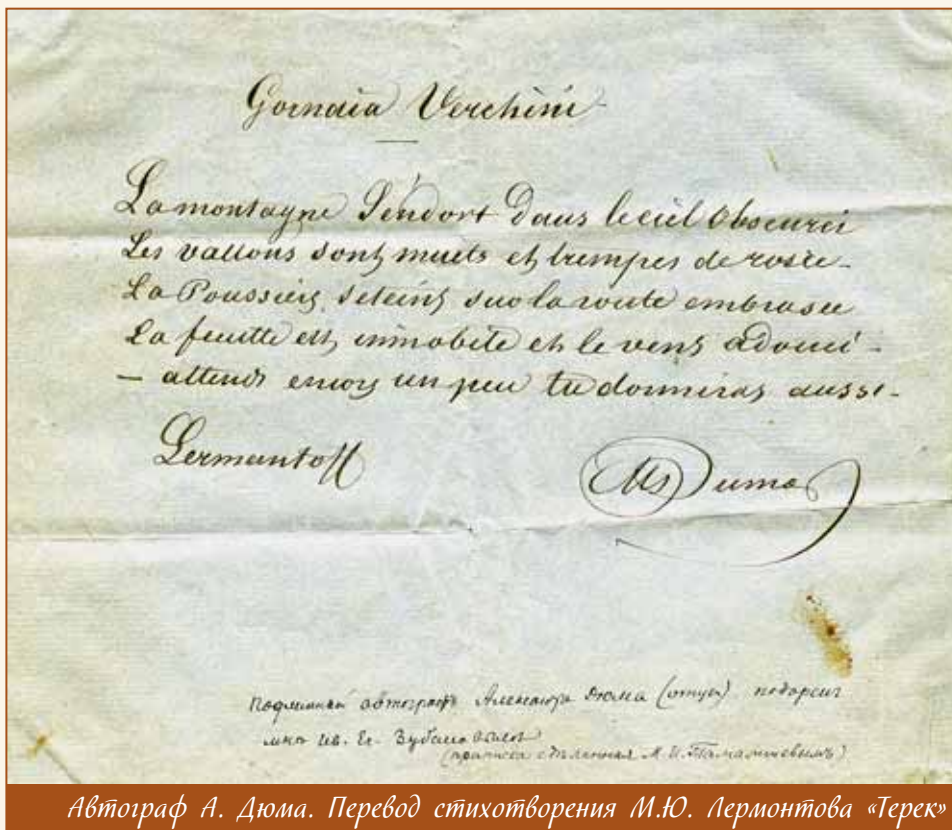 Gornaia Verchini
La montagne S'endort Dans le ciel Obscurci
Les vallons sont muets et trempes de rosée
La Poussiere s'eteint sur la route embrasee
La feuille est immobile et le vent adouci
— attends encore un peu tu dormiras aussi
Lermantoff
Als Dumas
Подлинный автографъ Александра Дюма (отца) подарен
мнѣ Ив. Ег.
(приписка сдѣланная М. И. Тамамшевымъ)
Автограф А. Дюма. Перевод стихотворения М.Ю. Лермонтова «Терек»